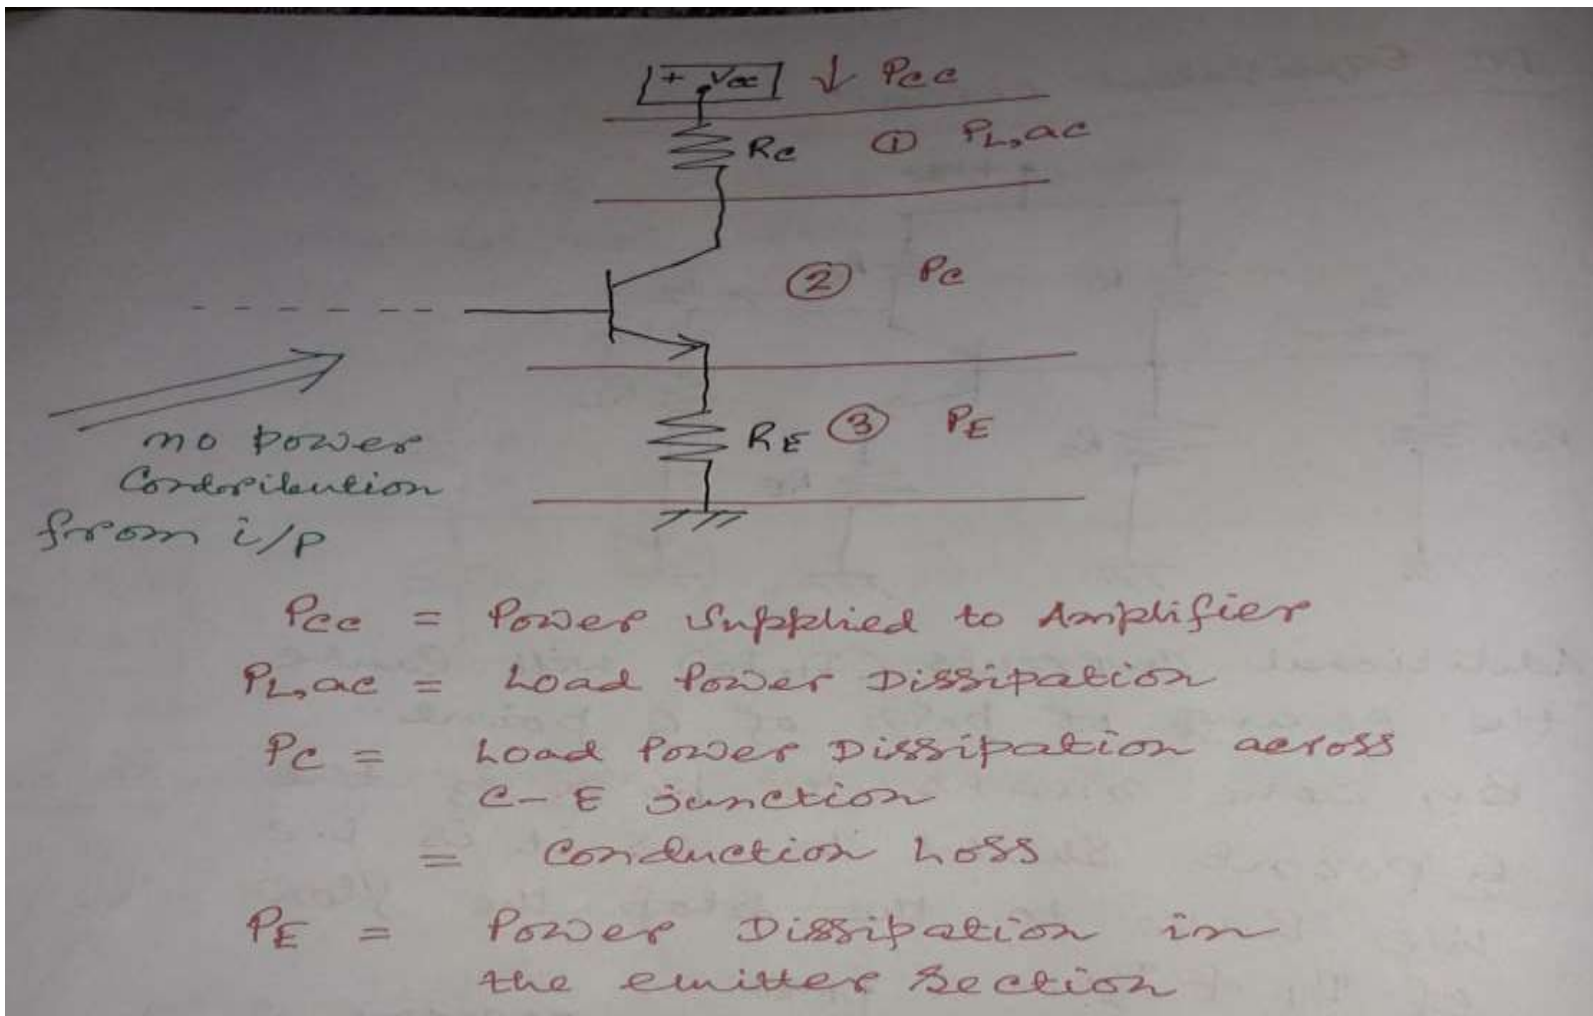 + Vcc ↓ Pcc
Rc ① PL,ac
② Pc
RE ③ PE
no power
Contribution
from i/p
Pcc = Power Supplied to Amplifier
PL,ac = Load Power Dissipation
Pc = Load Power Dissipation across
C-E junction
= Conduction Loss
PE = Power Dissipation in
the emitter Section